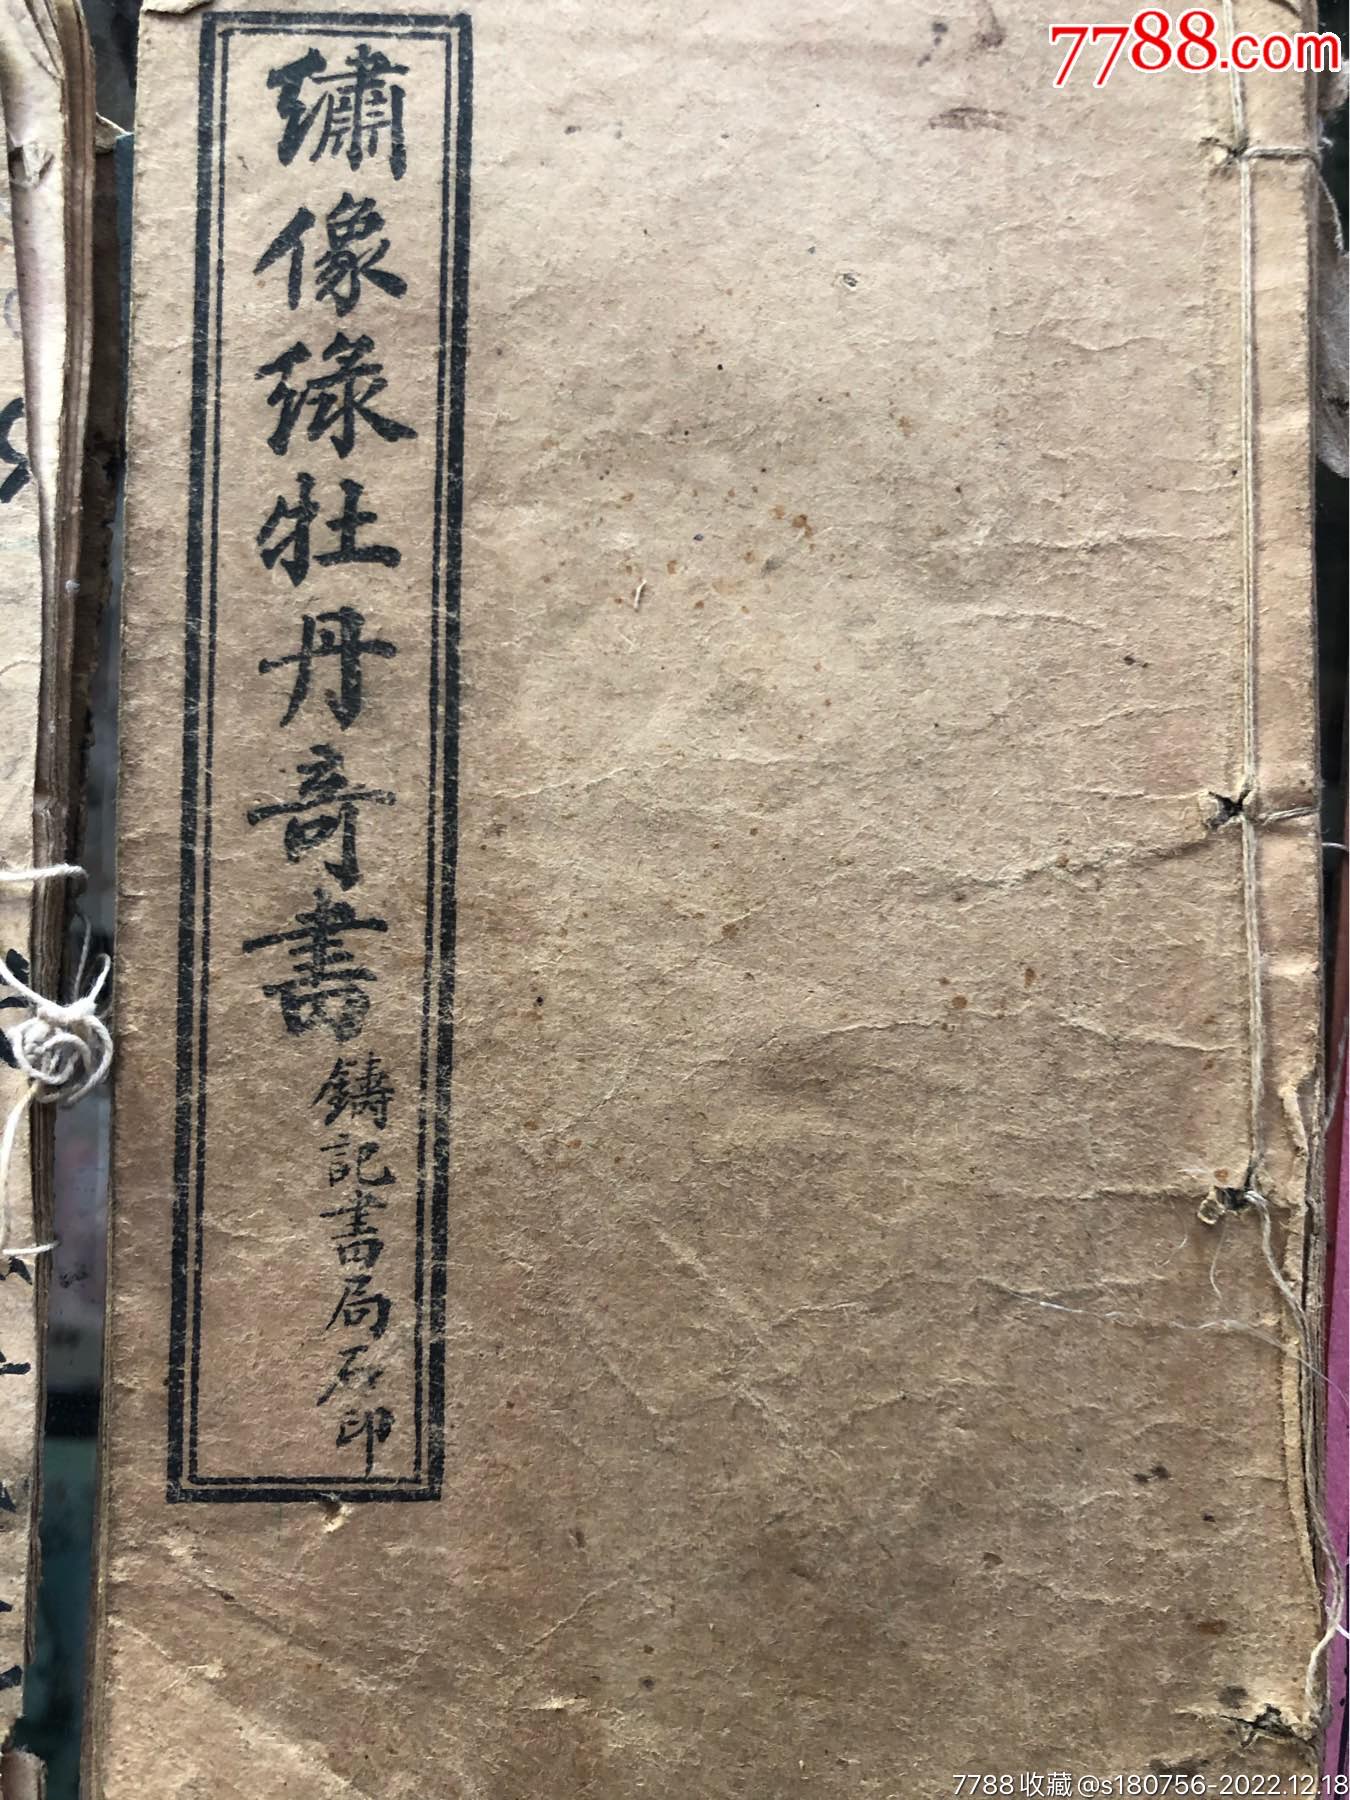 7788.com
繡像綠牡丹奇書
鑄記書局石印
7788收藏@s180756-2022.12.18